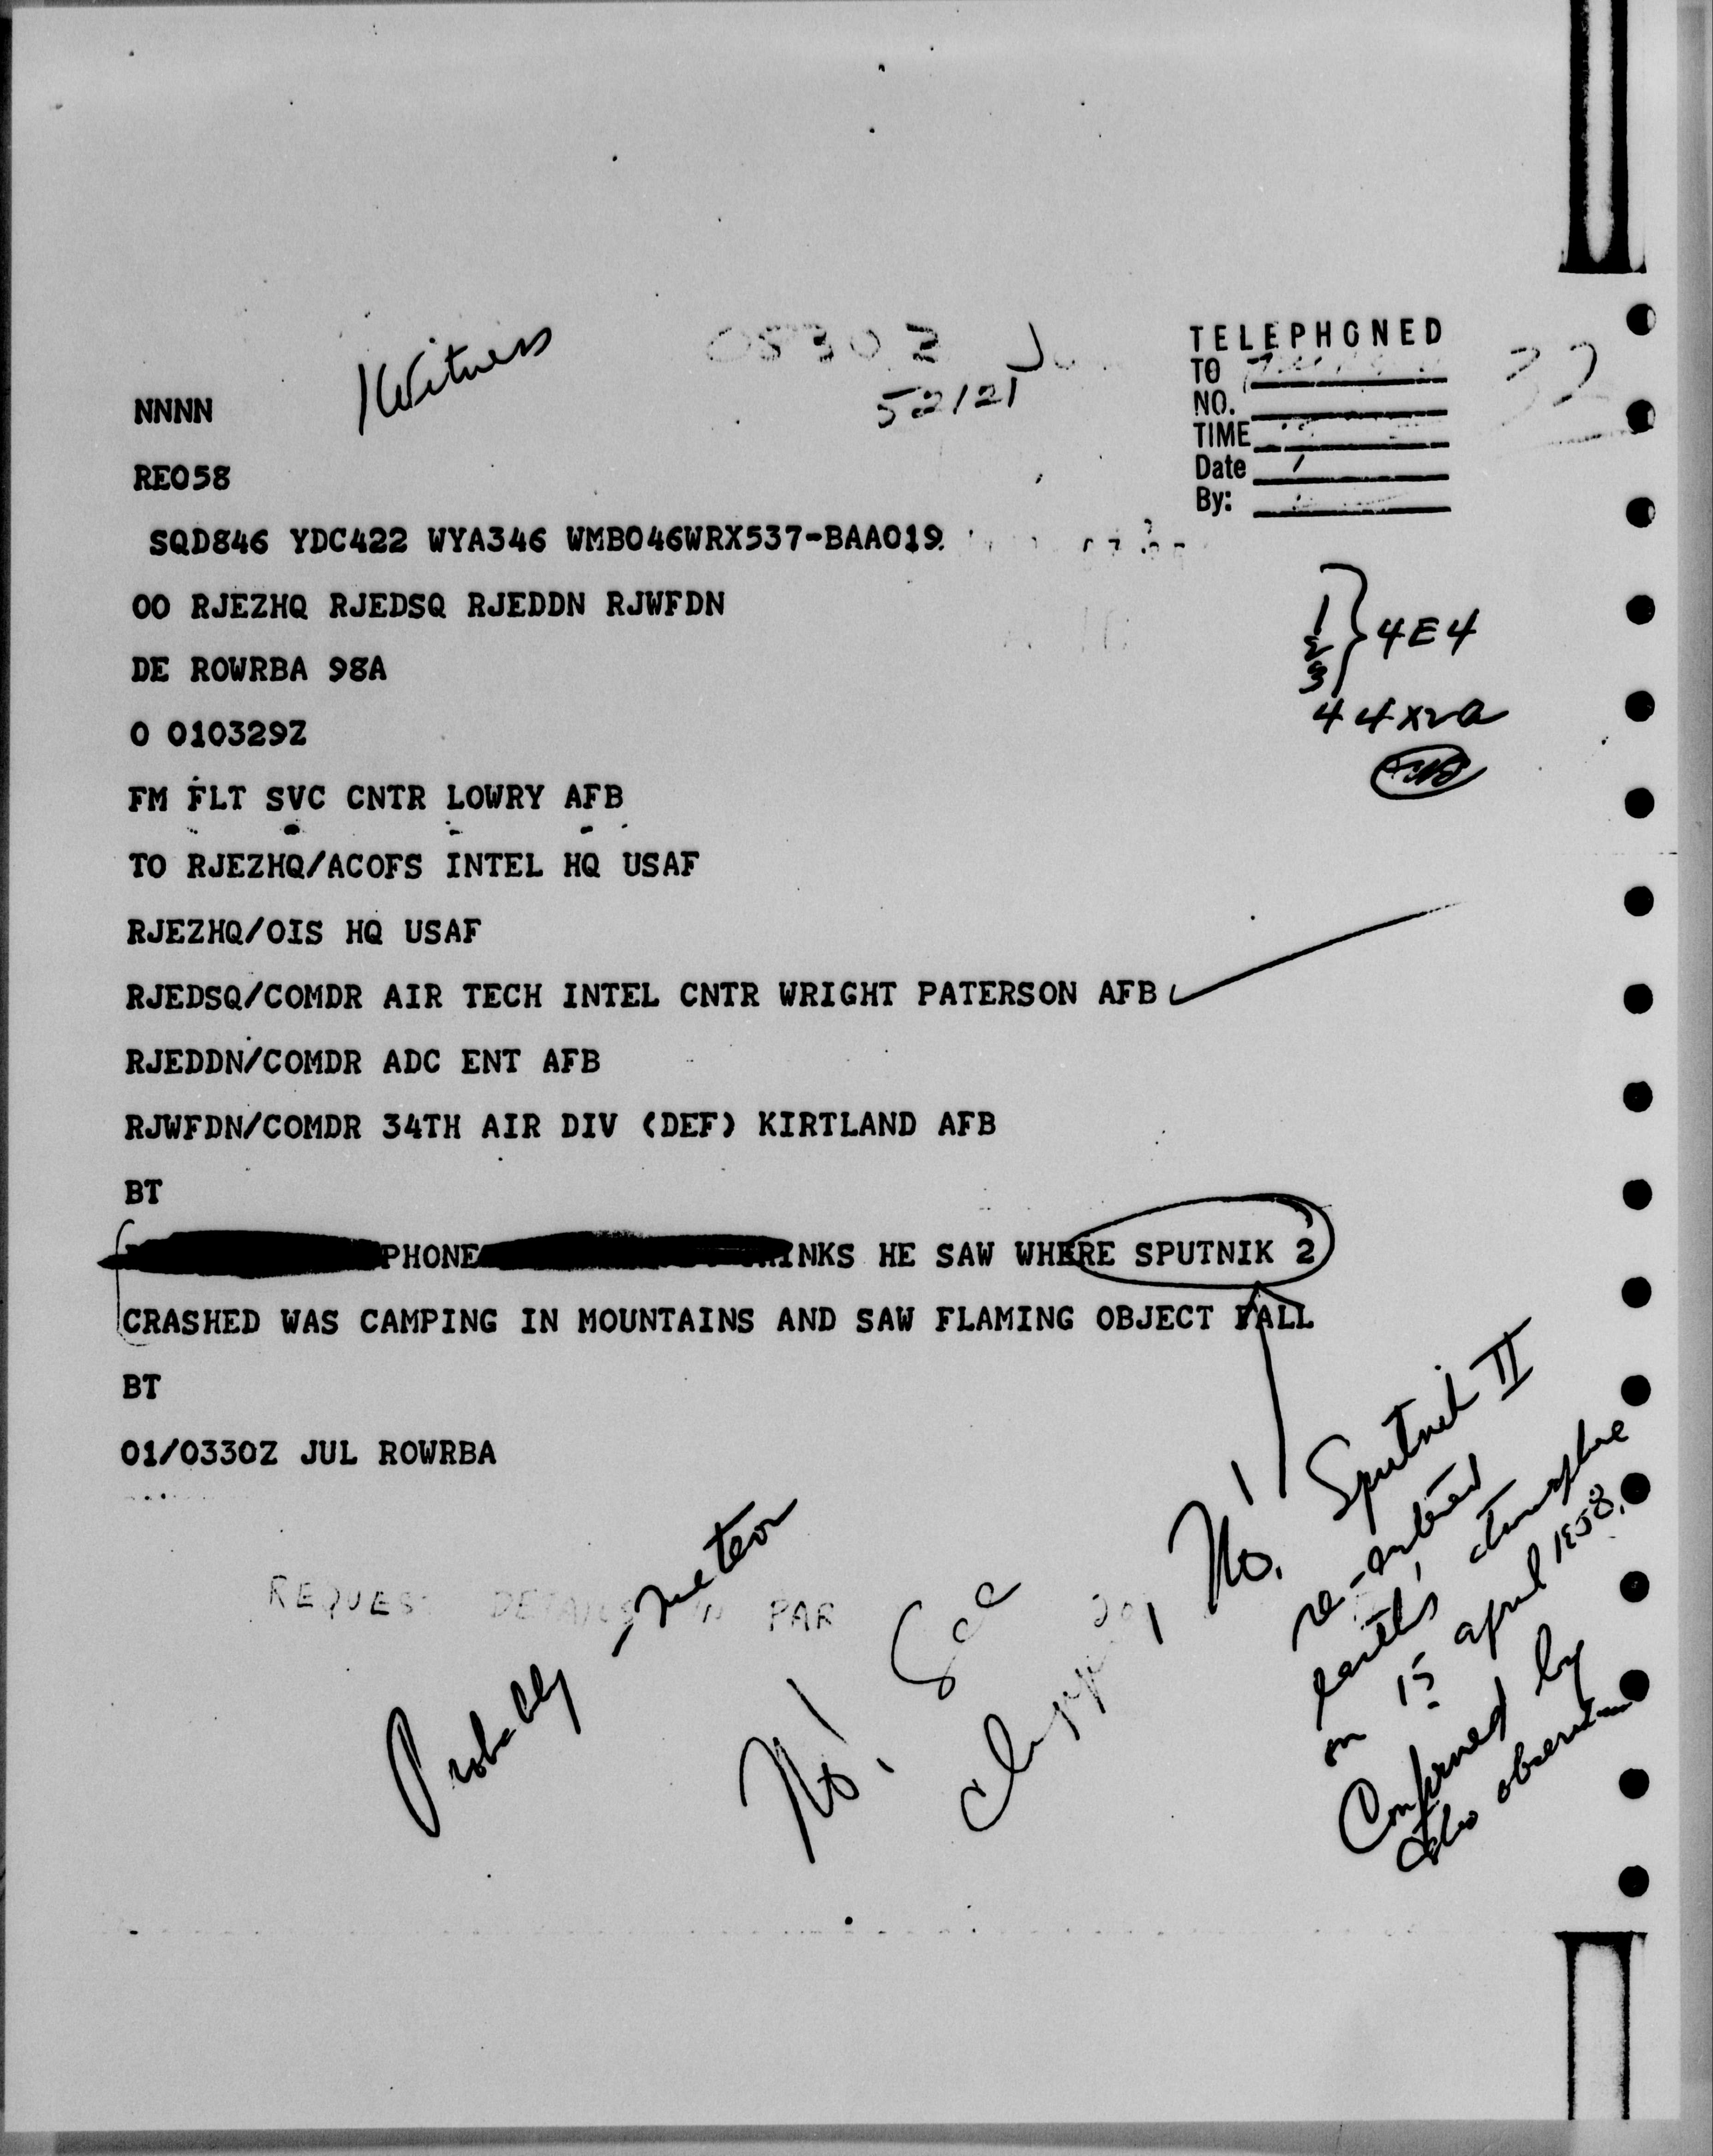 Witness
52/21
TELEPHONED
TO
NO.
TIME
Date
By:
NNNN
RE058
SQD846 YDC422 WYA346 WMB046WRX537-BAA019
OO RJEZHQ RJEDSQ RJEDDN RJWFDN
DE ROWRBA 98A
O 010329Z
1
2
3
} 4E4
4 4X2a
FM FLT SVC CNTR LOWRY AFB
TO RJEZHQ/ACOFS INTEL HQ USAF
RJEZHQ/OIS HQ USAF
RJEDSQ/COMDR AIR TECH INTEL CNTR WRIGHT PATERSON AFB
RJEDDN/COMDR ADC ENT AFB
RJWFDN/COMDR 34TH AIR DIV (DEF) KIRTLAND AFB
BT
PHONE INKS HE SAW WHERE SPUTNIK 2
CRASHED WAS CAMPING IN MOUNTAINS AND SAW FLAMING OBJECT FALL
BT
01/0330Z JUL ROWRBA
Probably meteor
No! See
No! Sputnik II
re-entered
earth's atmosphere
on 15 april 1958.
Confirmed by